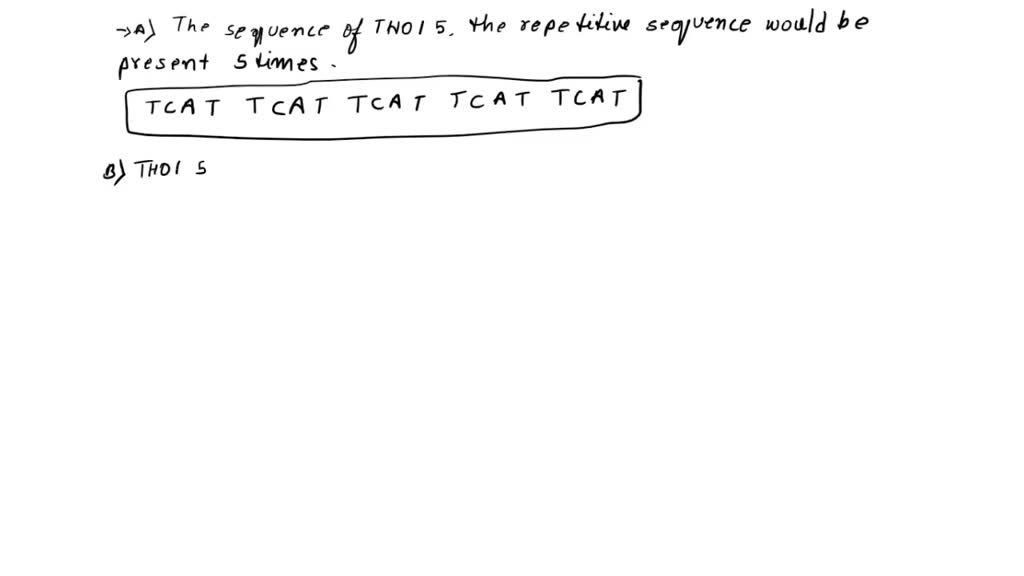 →A) The sequence of TH01 5. the repetitive sequence would be
present 5 times.
TCAT TCAT TCAT TCAT TCAT
B) TH01 5